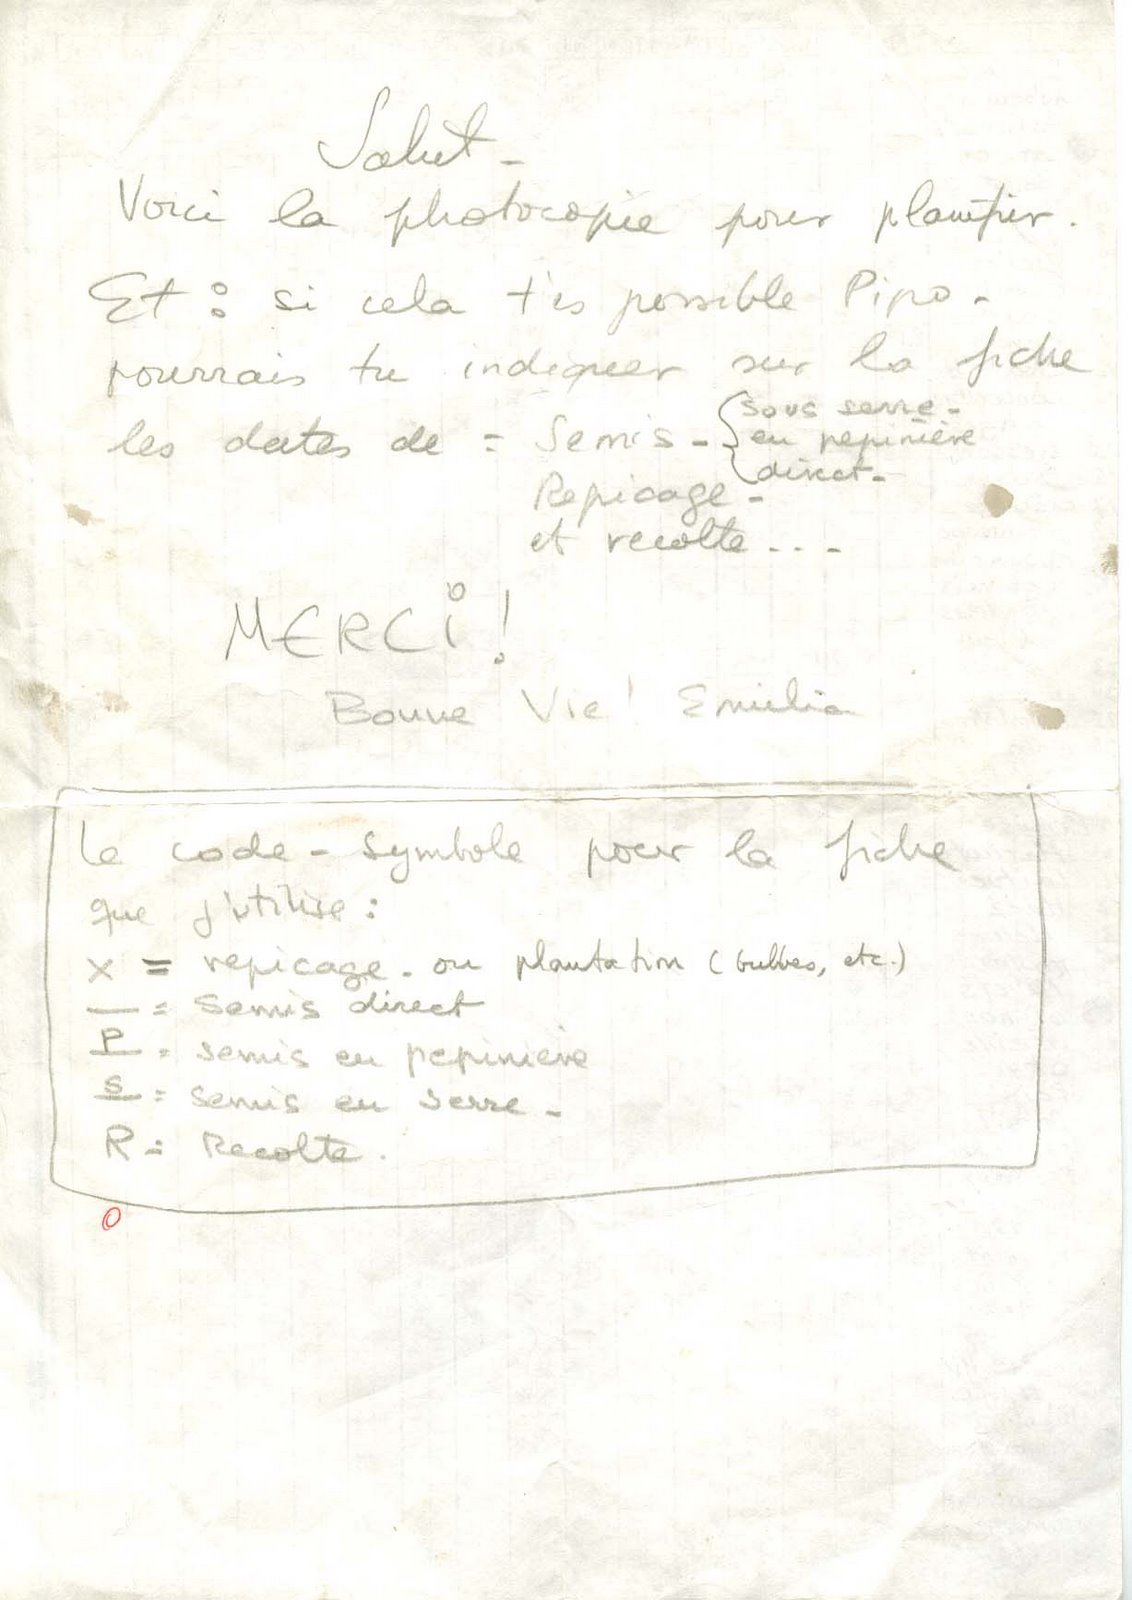 Salut -
Voici la photocopie pour planifier.
Et : si cela t'es possible Pipo -
pourrais tu indiquer sur la fiche
les dates de = Semis - { sous serre -
en pepinière
direct -
Repicage -
et recolte ... -
MERCi !
Bonne Vie ! Emilia
Le code - symbole pour la fiche
que j'utilise :
x = repicage. ou plantation (bulbes, etc.)
— = Semis direct
P = semis en pepinière
S = semis en serre -
R = Recolte.